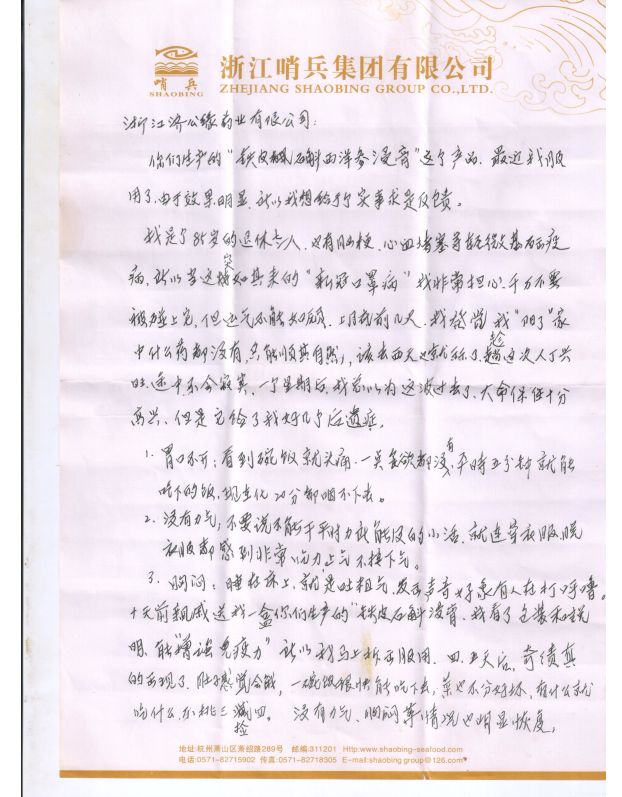 哨兵
SHAOBING
浙江哨兵集团有限公司
ZHEJIANG SHAOBING GROUP CO.,LTD.
浙江济公缘药业有限公司:
你们生产的“铁皮枫石斛西洋参浸膏”这个产品,最近我服
用了,由于效果明显,所以我想给予实事求是反馈。
我是个85岁的退休老人,也有脑梗,心血堵塞等
病,所以当这突如其来的“新冠口罩病”我非常担心,千万不要
被碰上它,但运气不能如愿,上月前几天,我发觉我“阳了”家
中什么药都没有,只能顺其自然,该去西天也就算了,趁这次人丁兴
旺,途中不会寂寞,一个星期后,我总以为这波过去了,大命保住十分
高兴,但是它给了我好几个后遗症,
1. 胃口不开:看到碗饭就头痛,一点食欲都没有,平时五分钟就能
吃下的饭,现在化20分都咽不下去。
2. 没有力气:不要说不能干平时力所能及的小活,就连穿衣服脱
衣服都感到非常吃力,上气不接下气。
3. 胸闷:睡在床上,就是吐粗气,发出声音好象有人在打呼噜。
十天前亲戚送我一盒你们生产的“铁皮石斛浸膏,我看了包装和说
明,能“增强免疫力”所以我马上拆开服用,四、五天后,奇绩真
的出现了,肚子感觉会饿,一碗饭很快能吃下去,菜也不分好坏,有什么就
吃什么,不挑三捡四。没有力气、胸闷等情况也明显恢复,
地址:杭州萧山区萧绍路289号 邮编:311201 Http:www.shaobing-seafood.com
电话:0571-82715902 传真:0571-82718305 E-mail:shaobing group@126.com